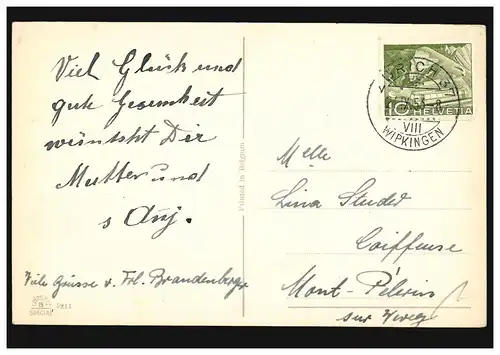 Viel Glück und
gute Gesundheit
wünscht Dir
Mutter und
s Anj.
Viele Grüsse v. Frl. Brandenberger
SPECIAL
Printed in Belgium
ZÜRICH 37
VIII
WIPKINGEN
10 HELVETIA
Melle
Lina Studer
Coiffeuse
Mont-Pélerin
sur Vevey